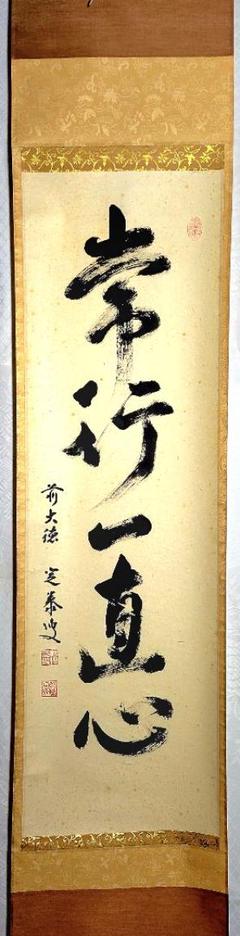 常行一直心
前大徳 定泰叟